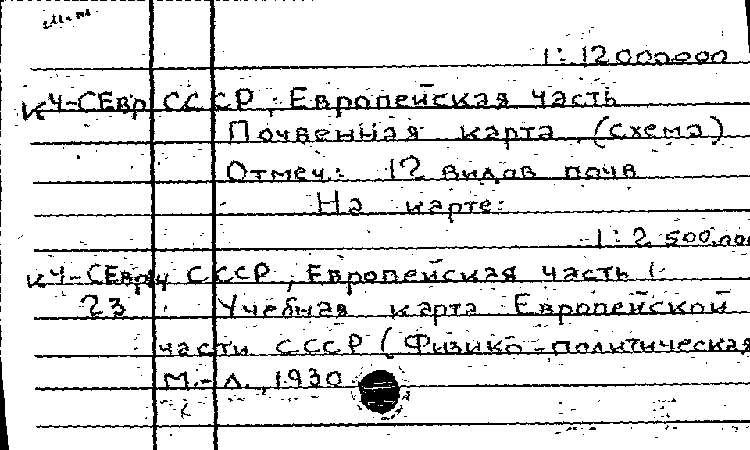 1:12000000
К4-СЕвр СССР, Европейская часть
Почвенная карта (схема)
Отмеч.: 12 видов почв
На карте:
1:2 500.000
К4-СЕвр/4 СССР, Европейская часть
23 Учебная карта Европейской
части СССР (Физико-политическая
М.-Л., 1930